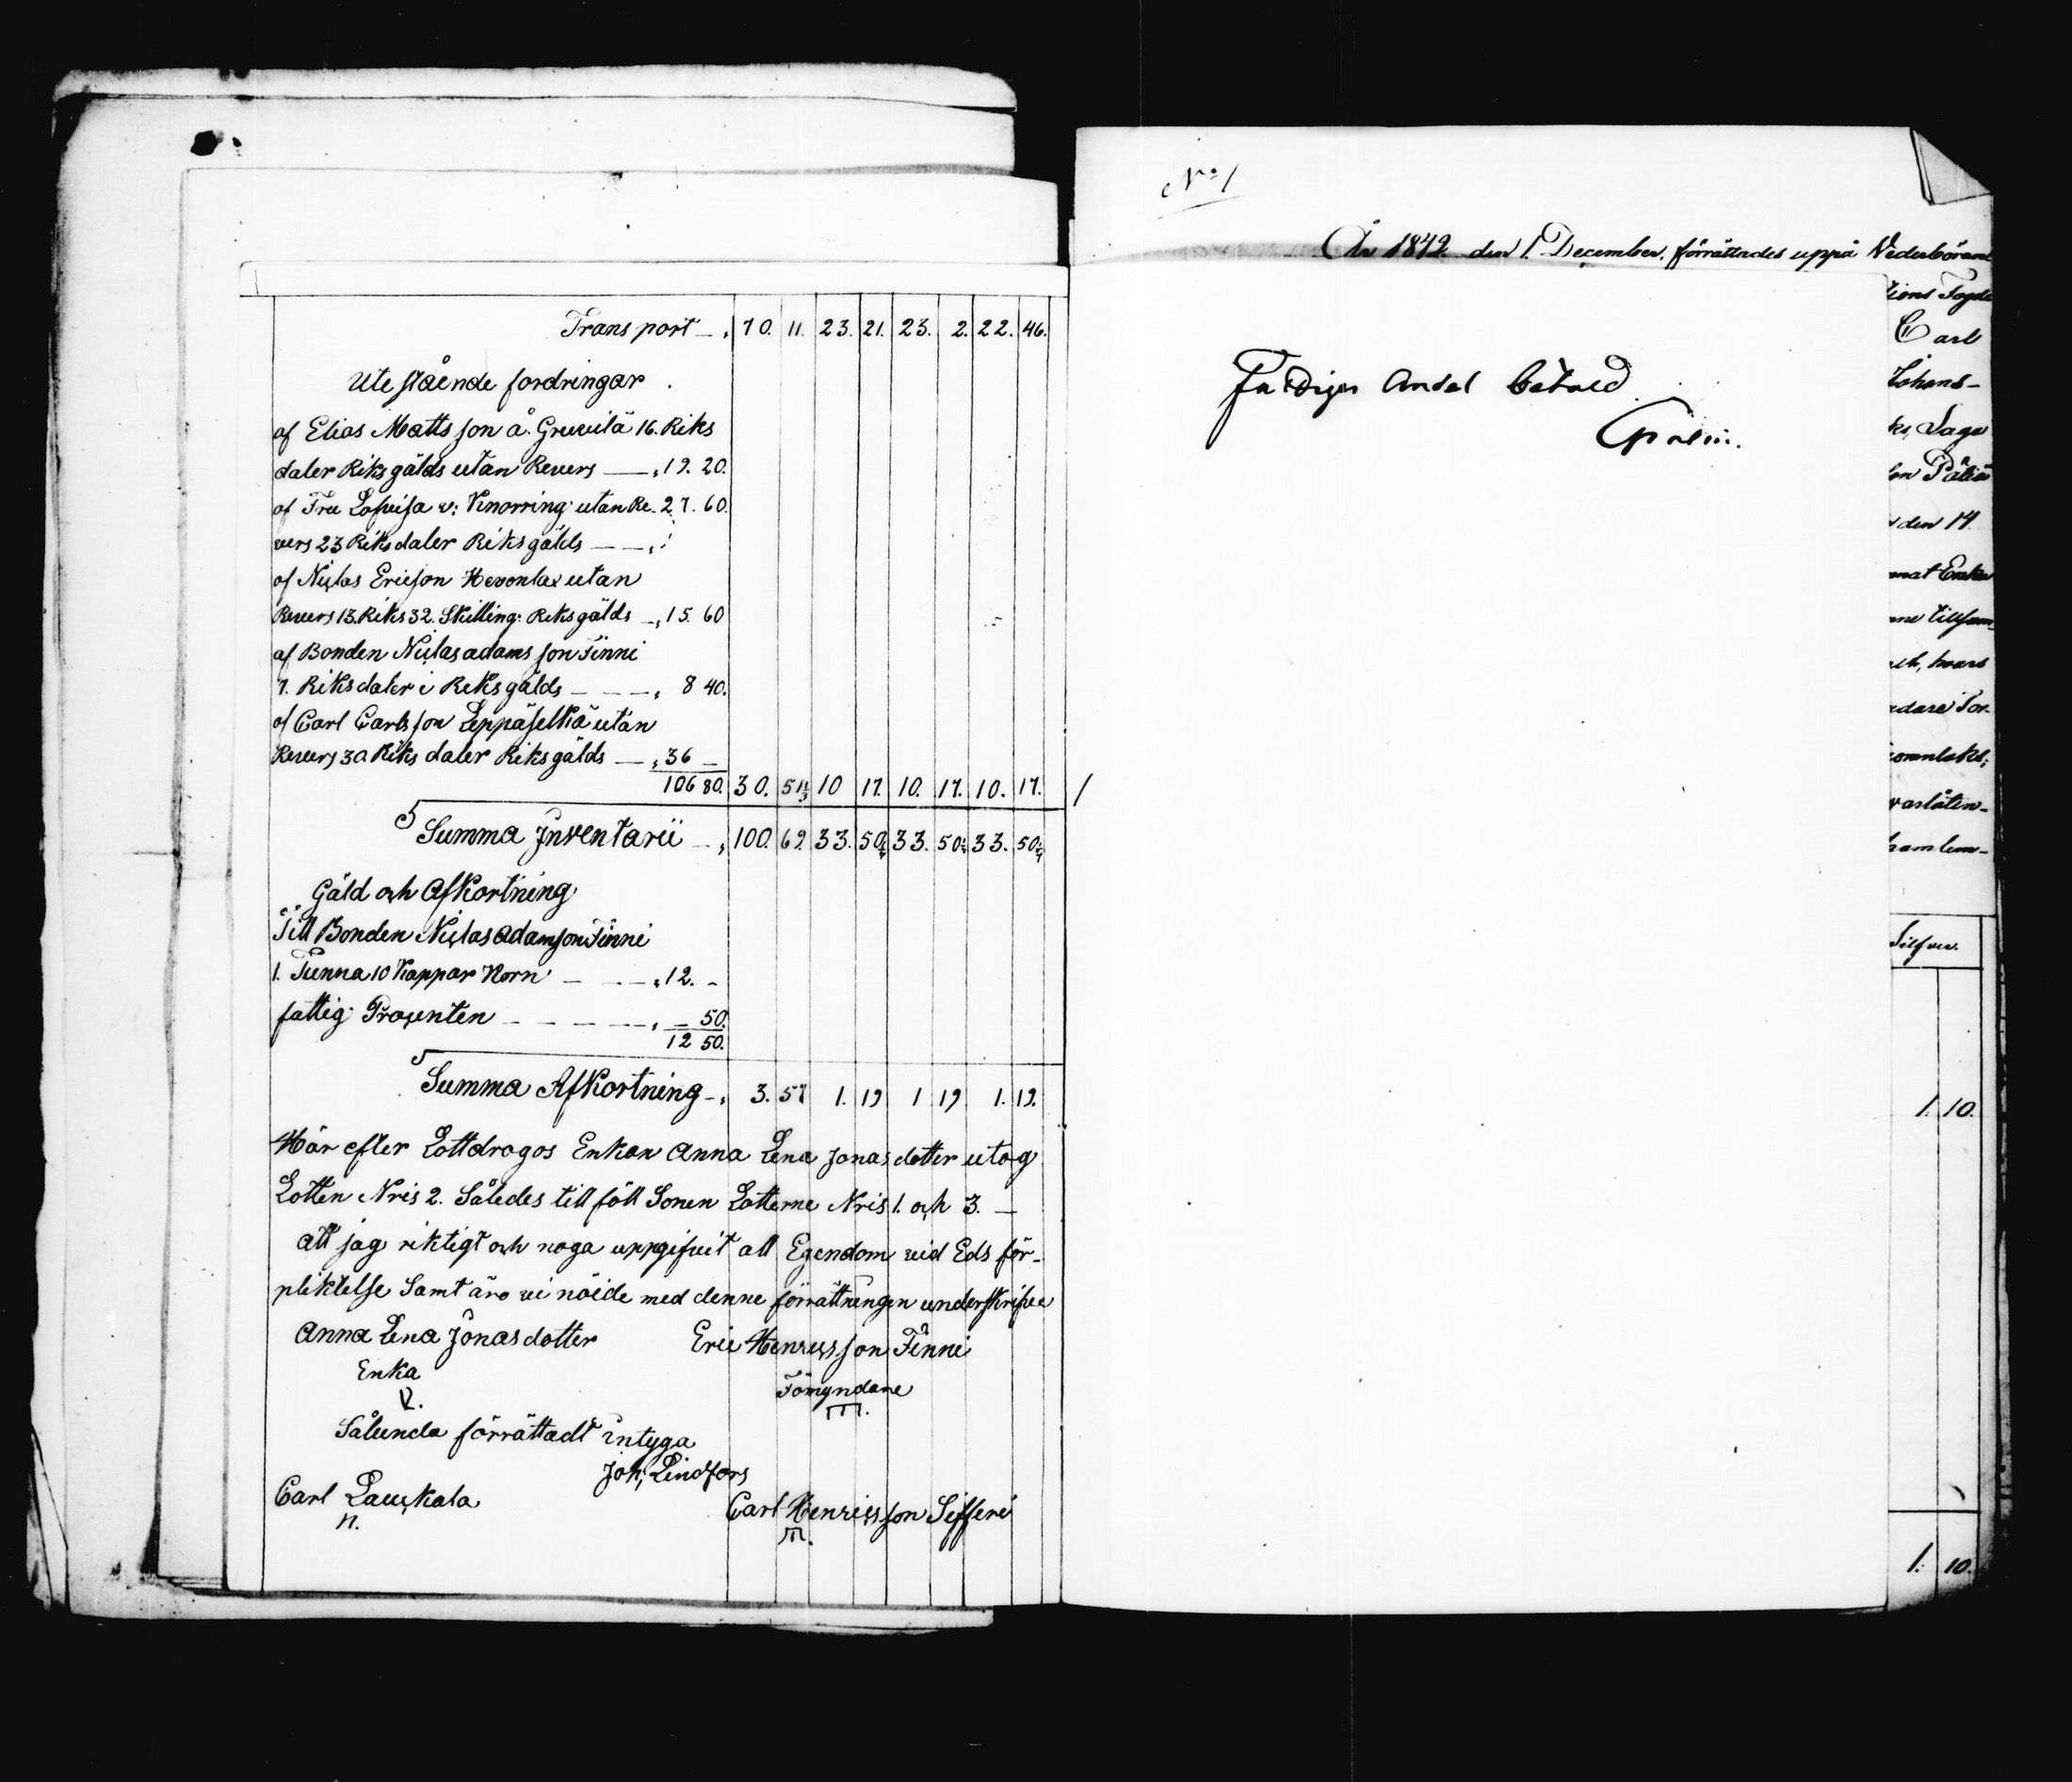 Transport — „ 70. 11. 23. 21. 23. 2. 22. 46.
Utestående fordringar
af Elias Mattsson å Gruvilä 16. Riks
daler Riksgälds utan Revers — „ 19. 20.
af Fru Lovisa v: Knorring utan Re- 27. 60.
vers 23 Riksdaler Riksgälds — — „
af Niclas Ericson Hevonlax utan
Revers 13. Riks 32. Skilling: Riksgälds — „ 15. 60
af Bonden Niclas adamsson Finni
7. Riksdaler i Riksgälds — — — „ 8 40.
af Carl Carlsson Leppäselkä utan
Revers 30 Riksdaler Riksgälds — „ 36 —
106 80. 30. 51 1/3 10 17. 10. 17. 10. 17.
Summa Inventarii — „ 100. 69. 33. 50 33. 50 33. 50
Gäld och Afkortning
Till Bonden Niclas adamson Finni
1. Tunna 10 Kappar Korn — — — „ 12. –
fattig Procenten — — — — — „ — 50.
12 50.
Summa Afkortning — „ 3. 57 1. 19 1 19 1. 19.
Här efter Lottdrogos Enkan Anna Lena Jonasdotter utog
Lotten Nris 2. Således till föll Sonen Lotterne Nris 1. och 3. —
att jag riktigt och noga uppgifvit all Egendom vid Eds för-
pliktelse Samt äro vi nöide med denne förrättningen underskrifve
Anna Lena Jonasdotter Eric Henricsson Finni
Enka Förmyndare
Sålunda förrättadt intyga
Joh; Lindfors
Carl Lauckala Carl Henricsson Sifferi
No 1
År 1842 den 1. December, förrättades uppå Vederböran
tions Fogde
Carl
Johans-
den 14
Fattiges Andel betald
Silfver.
1. 10.
1. 10.